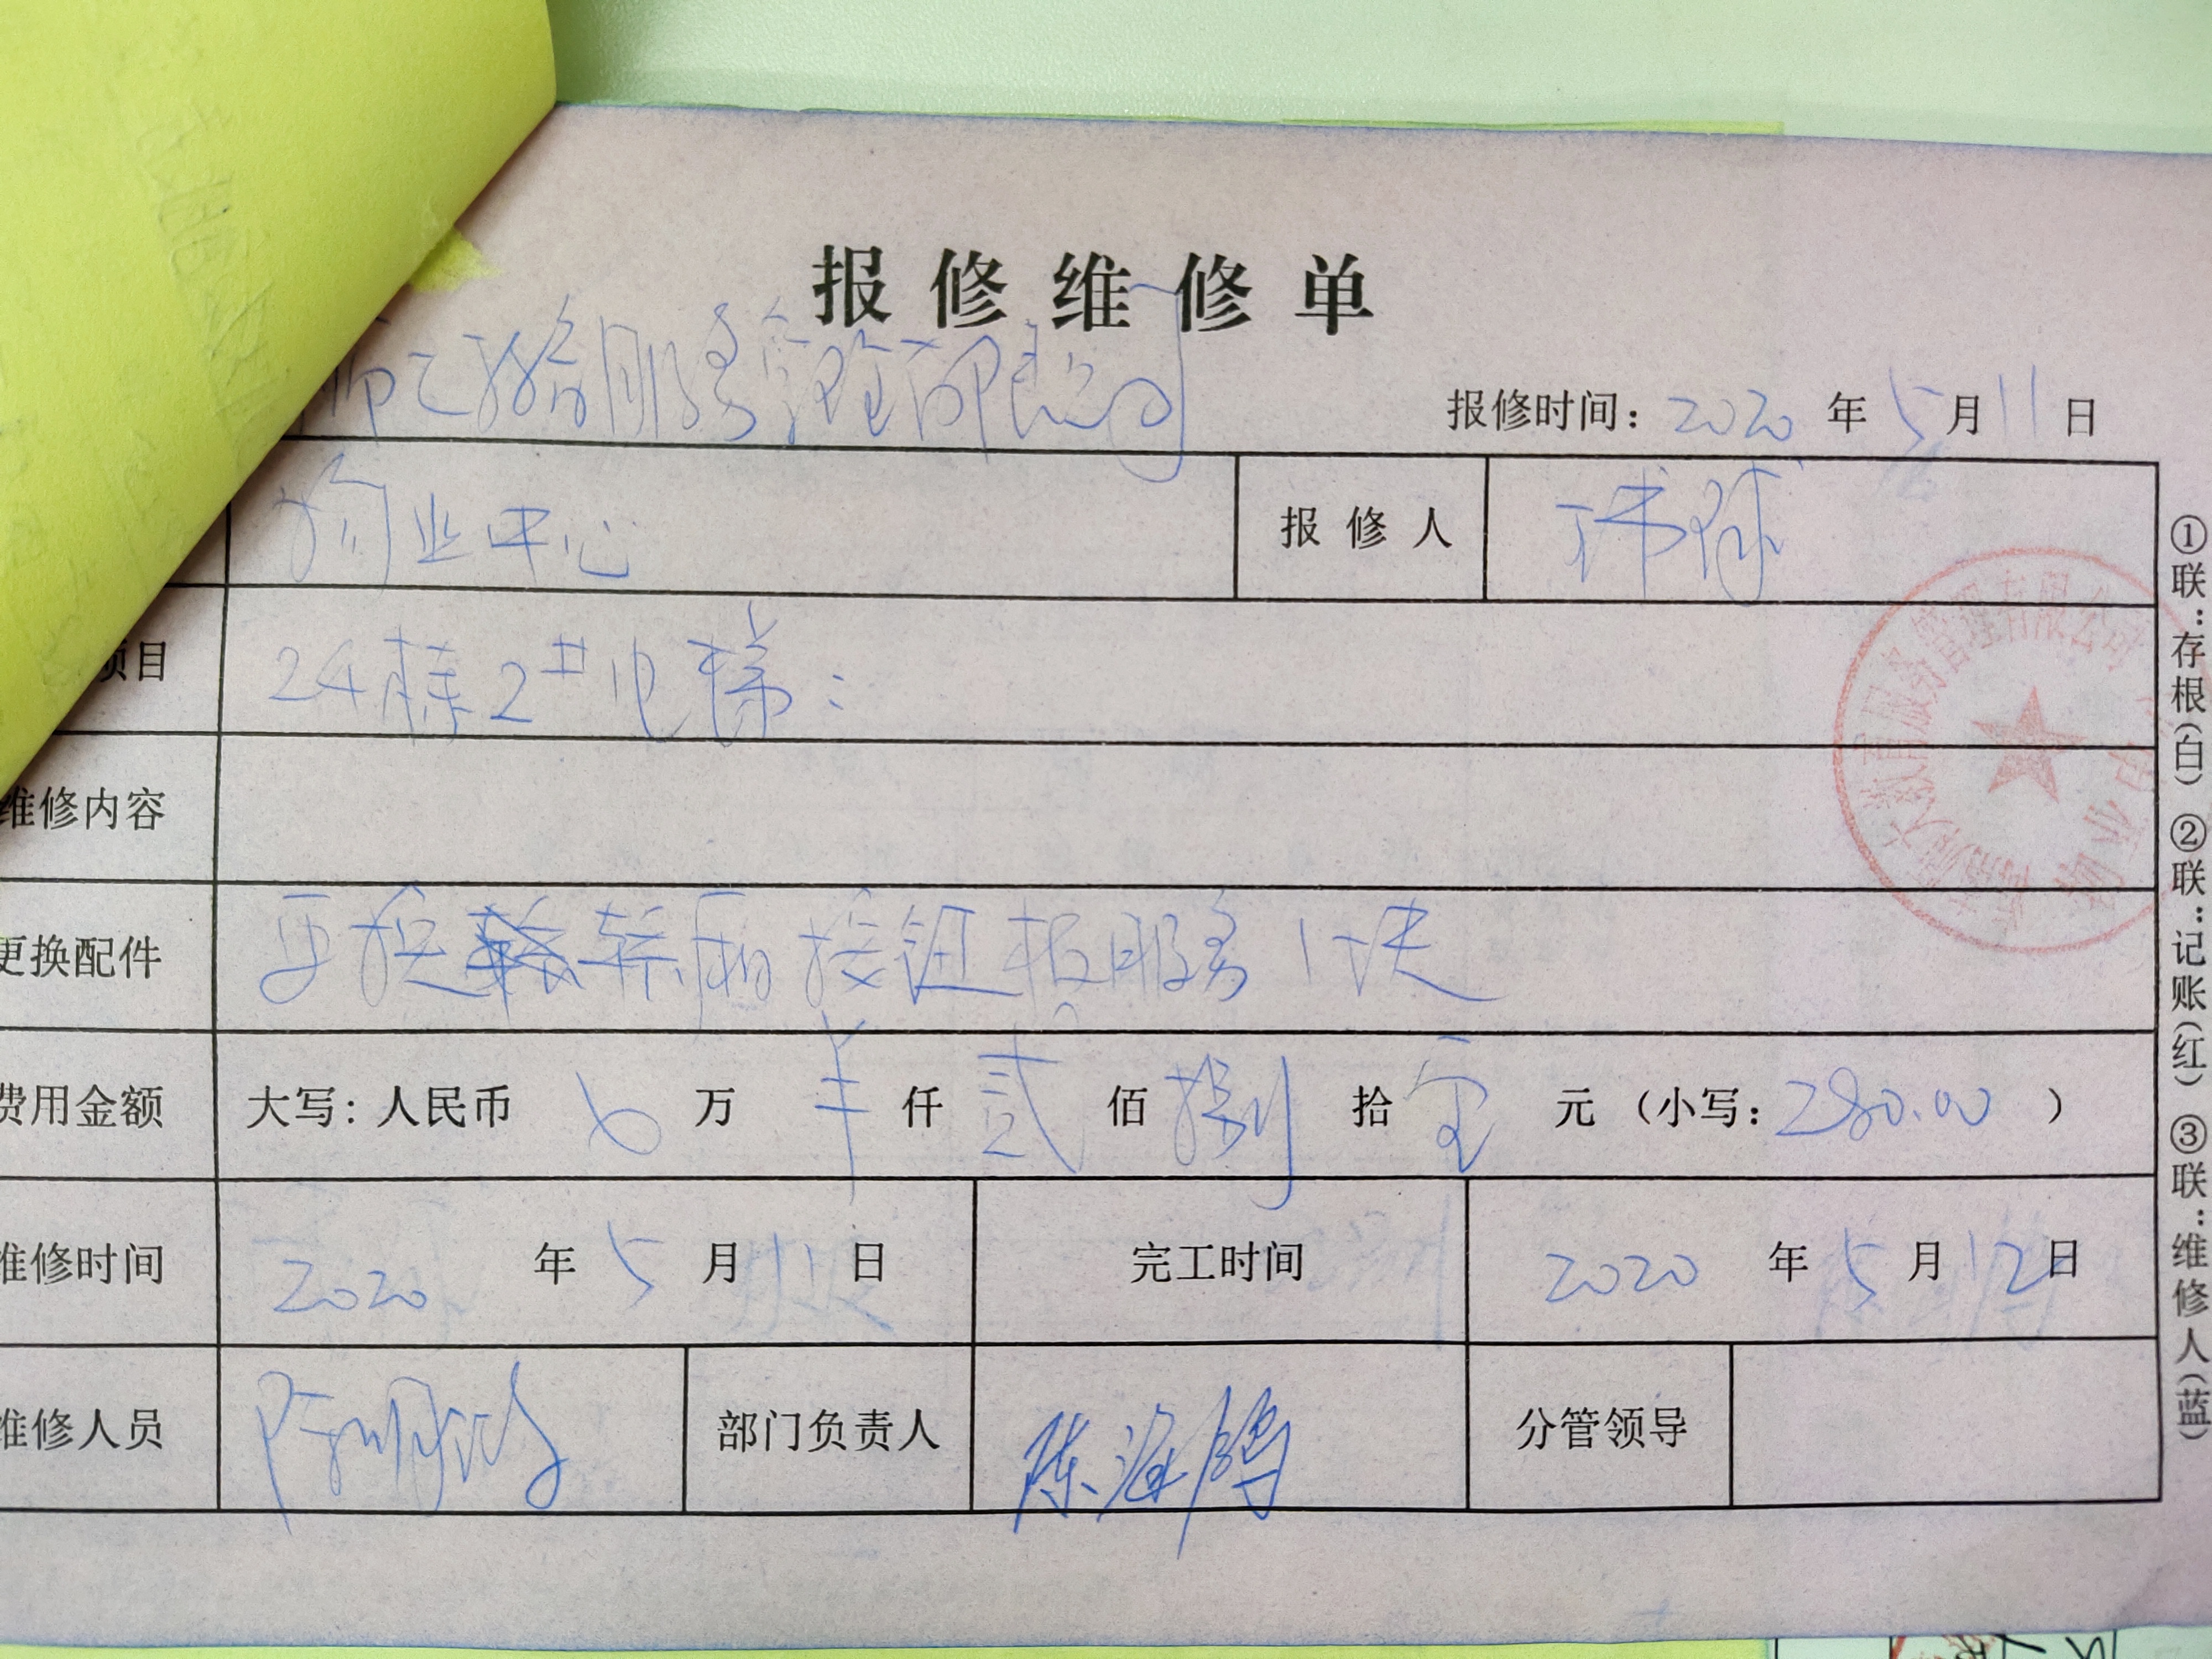 报修维修单
服务管理有限公司
报修时间：2020年5月11日
物业中心 报修人
项目 24栋2#电梯：
维修内容
更换配件 更换轿厢按钮板服务1块
费用金额 大写：人民币 万 仟 贰佰捌拾零元（小写：280.00）
维修时间 2020年5月11日 完工时间 2020年5月12日
维修人员 部门负责人 陈海鸥 分管领导
①联：存根（白）②联：记账（红）③联：维修人（蓝）
教育服务管理有限公司